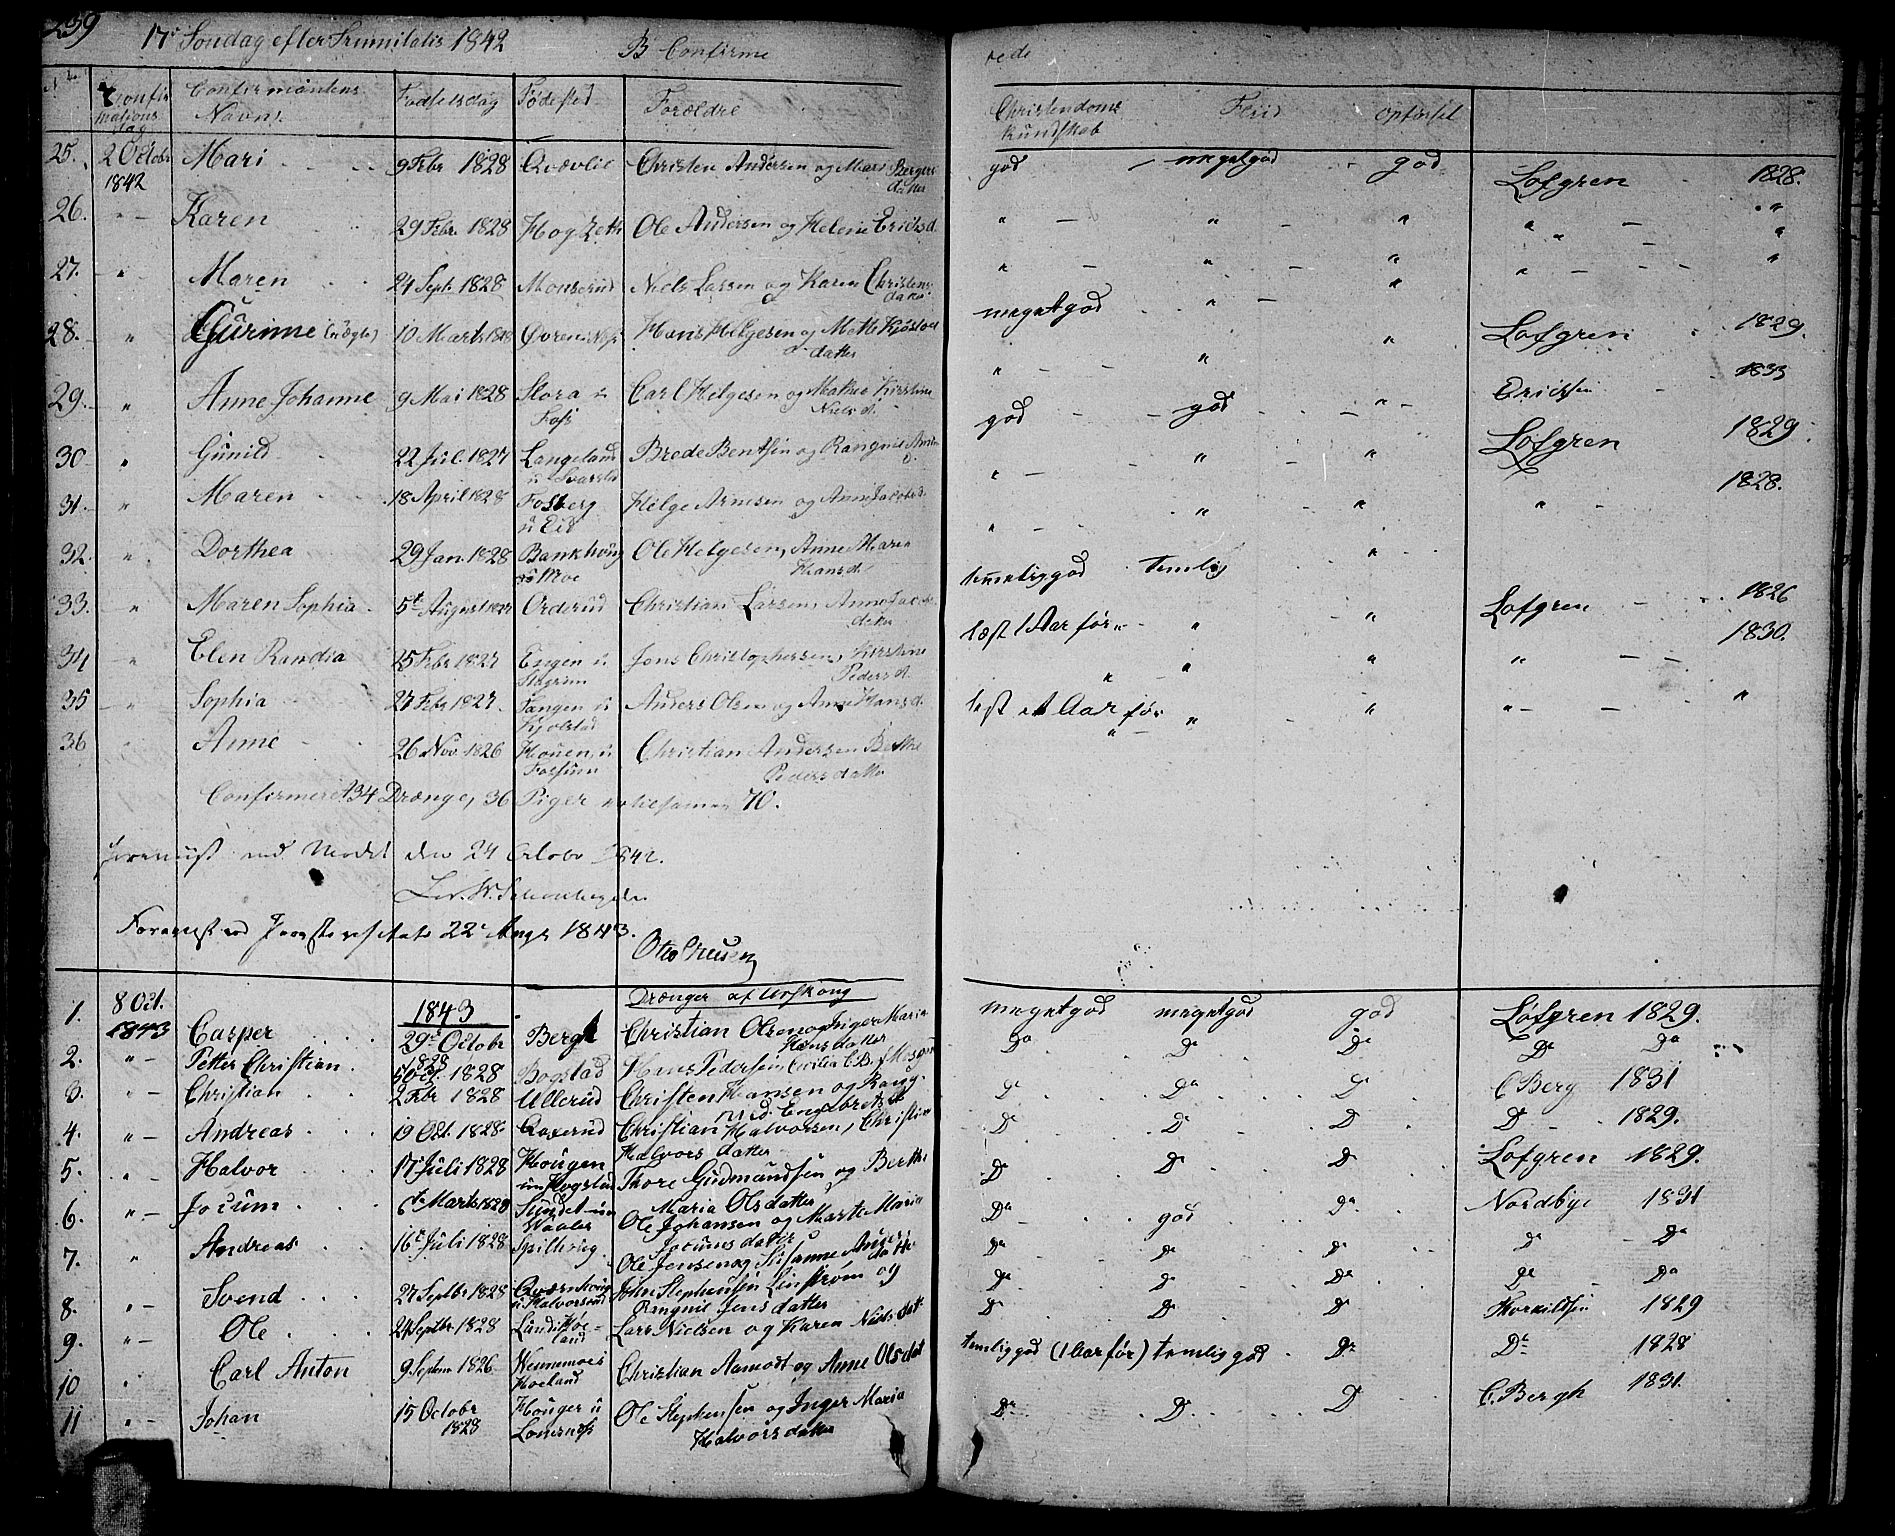 239
17de Søndag efter Trinitatis 1842 B Confirme rede
No Confirmations dag Confirmantens Navn. Fødselsdag Fødested Forældre Christendoms kundskab Flid Opførsel
25. 2 Octobr 1842 Mari 9 Febr 1828 Qvævlie Christen Andersen og Mari Bergersdatter god meget god god Lofgren 1828.
26. " - Karen 29 Febr 1828 Hogzeth Ole Andersen og Helene Ericksd. " " " " "
27. " Maren 24 Sept. 1828 Monserud Niels Larsen og Karen Christensdatter " " " " "
28. " Gurine 10 Marts 1828 Ovren i Næs Hans Helgesen og Mette datter meget god " " Lofgren 1829.
29. " Anne Johanne 9 Mai 1828 Slora u Foss Carl Helgesen og Mathea Kirstine Niels d. " " " Ericksen 1833
30 " Gunild 22 Jul. 1827 Langeland u Svarstad Brede Bentsen og Rangnild god god " Lofgren 1829.
31. " Maren 18 April 1828 Fosberg u Eid Helge Arnesen og Anne Jacobsd. " " " " 1828.
32. " Dorthea 29 Jan. 1828 Bankhoug u Moe Ole Helgesen, Anne Maria Hans d. " " "
33. " Maren Sophia 5te August 1827 Orderud Christian Larsen, Anne Jacobsdatter temelig god temelig " Lofgren 1826
34 " Elen Randia 15 Febr 1827 Engen u Jens Christophersen, Kirstine Peders d. læst 1 Aar før " " " 1830.
35 " Sophia 27 Febr 1827. Tangen u Kjolstad Anders Olsen og Anne Hans d. " " " " "
36 Anne 26 Nov. 1826 Houen u Forsum Christian Andersen Berthe Pedersdatter lest et Aar før " "
Confirmeret 34 Drænge, 36 Piger tilsamen 70.
den 24 Octobr 1842.
Foreviist ved 22de Augs 1843.
1843 Drænger af Urskoug
1. 8 Oct. 1843 Casper 29de Octobr 1828 Berg Christian Olsen og Inger Maria Hansdatter meget god meget god god Lofgren 1829.
2. " - Petter Christian Oct. 1828 Bogstad Hans Pedersen, Cecilia C. D. Do Do Do Do Do
3. " - Christian 2 Febr 1828 Ullerud Christen Hansen og Rangnild Engebretsd. Do Do Do C Berg 1831
4. " - Andreas 19 Oct. 1828 Christian Halvorsen, Christine Halvorsdatter Do Do D Do 1829.
5. " - Halvor 17 Juli 1828 Hougen un Hogstad Thore Gudmundsen og Berthe Maria Olsdatter Do Do Do Lofgren 1829.
6. " - Jocum 6te Marts 1828 Sundet un Waaler Ole Johansen og Marte Maria Jocumsdatter Do god Do Nordbye 1831
7. " Andreas 16de Juli 1828 Spilhoug Ole Jensen og Susanne Andersdatter Do Do Do Do Do
8. " - Svend 27 Septbr 1828 Qværnhoug u Halvorsrud John Stephensen Linstrøm og Rangnil Jensdatter Do Do Do Do Do
9. " - Ole 24 Septbr 1828 Lars Nielsen og Karen Nielsdatt Do Do Do Thorkildsen 1829
10 " Carl Anton 9 Septem 1826 Wennemoe i Hoeland Christian Aamodt og Anne Olsdat temlig god (1 Aar før) temlig god Do Do 1828
11 " - Johan 15 Octobr 1828 Houger u Lonesnæss Ole Stephensen og Inger Maria Halvorsdatter Do D D C. Bergh 1831.